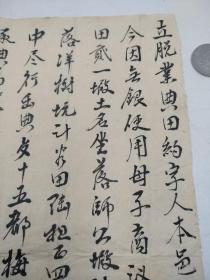 立脱業典田約字人本邑
今因無銀使用母子商議
田貳一墩土名坐落師公墩
落洋樹坑計米田陆担百四
中尽行出典与十五都梅